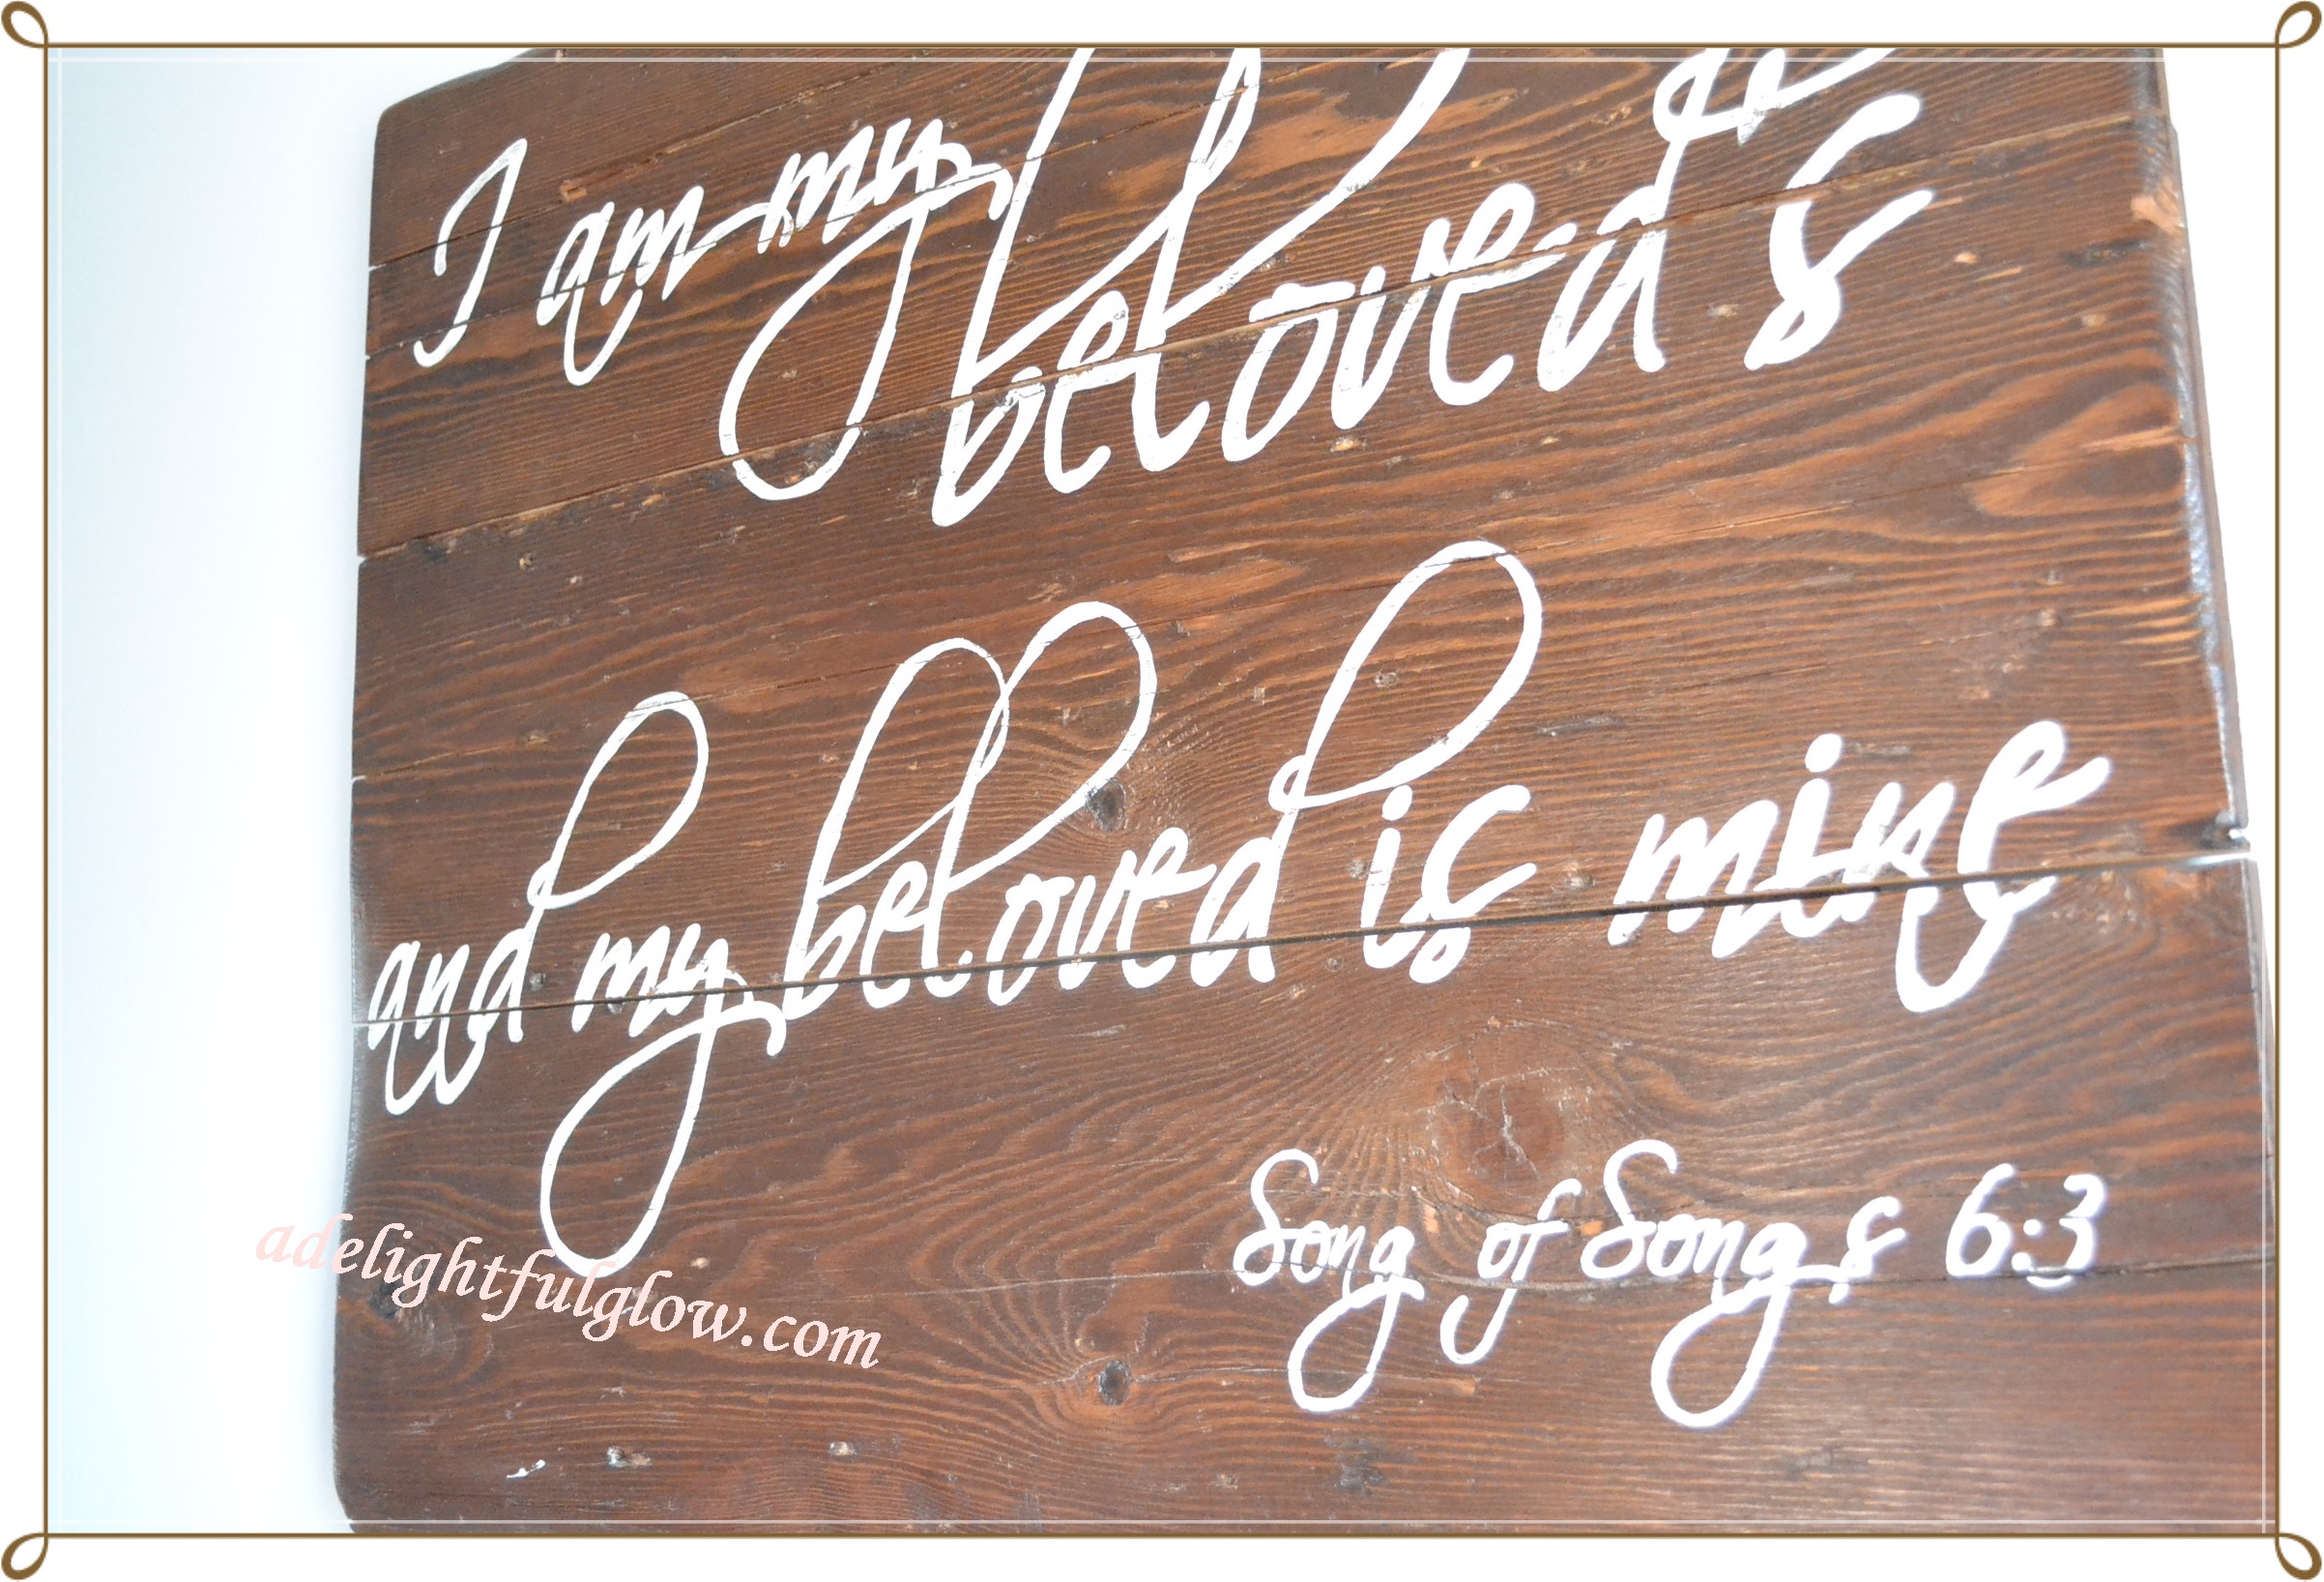 I am my
beloved's
and my beloved is mine
Song of Songs 6:3
adelightfulglow.com